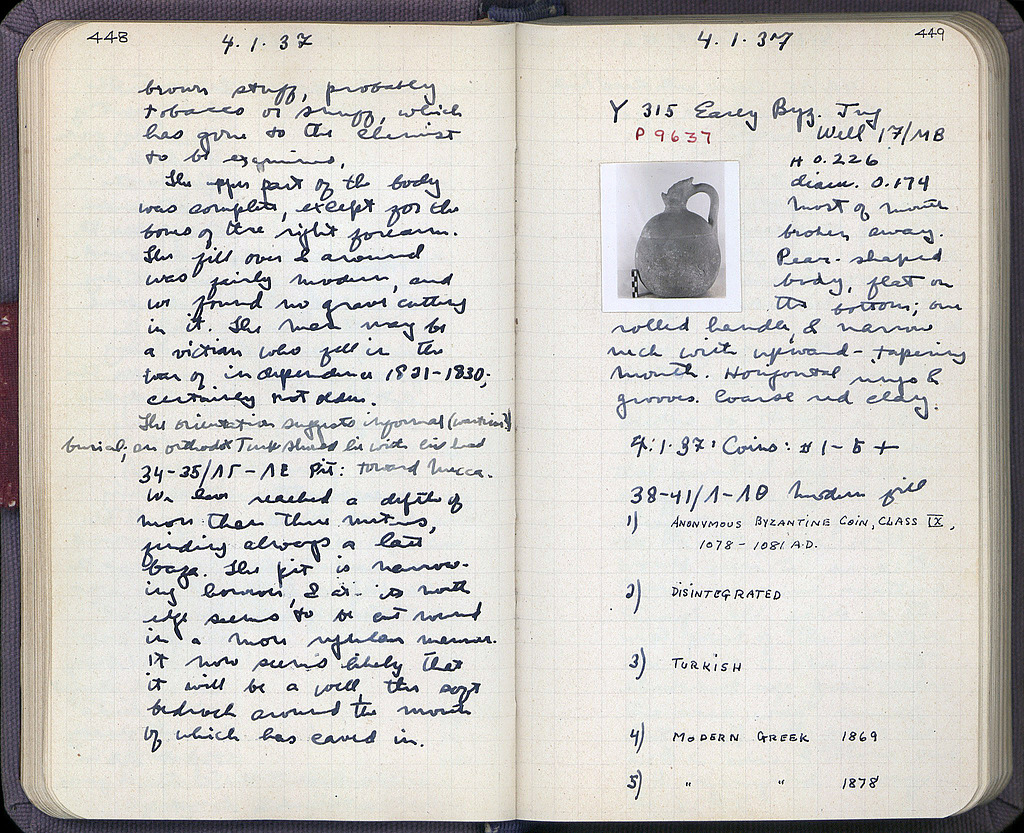 448
4.1.37
brown stuff, probably
tobacco or snuff, which
has gone to the chemist
to be examined.
The upper part of the body
was complete, except for the
bones of the right forearm.
The fill over & around
was fairly modern, and
we found no grave cutting
in it. The man may be
a victim who fell in the
war of independence 1821-1830;
certainly not older.
The orientation suggests informal (wartime)
burial; an orthodox Turk should lie with his head
toward Mecca.
34-35/ΙΓ-ΙΕ Pit:
We have reached a depth of
more than three meters,
finding always a late
The pit is narrow-
ing however, & at its north
edge seems to be cut round
in a more regular manner.
It now seems likely that
it will be a well, the soft
bedrock around the mouth
of which has caved in.
449
4.1.37
Y 315 Early Byz. Jug
P 9637
Well 17/ΜΒ
H 0.226
diam. 0.174
most of mouth
broken away.
Pear-shaped
body, flat on
the bottom; one
rolled handle, & narrow
neck with upward-tapering
mouth. Horizontal rings &
grooves. Coarse red clay.
4.1.37: Coins: #1-5 +
38-41/Λ-ΛΘ Modern fill
1) ANONYMOUS BYZANTINE COIN, CLASS IX,
1078-1081 A.D.
2) DISINTEGRATED
3) TURKISH
4) MODERN GREEK 1869
5) " " 1878